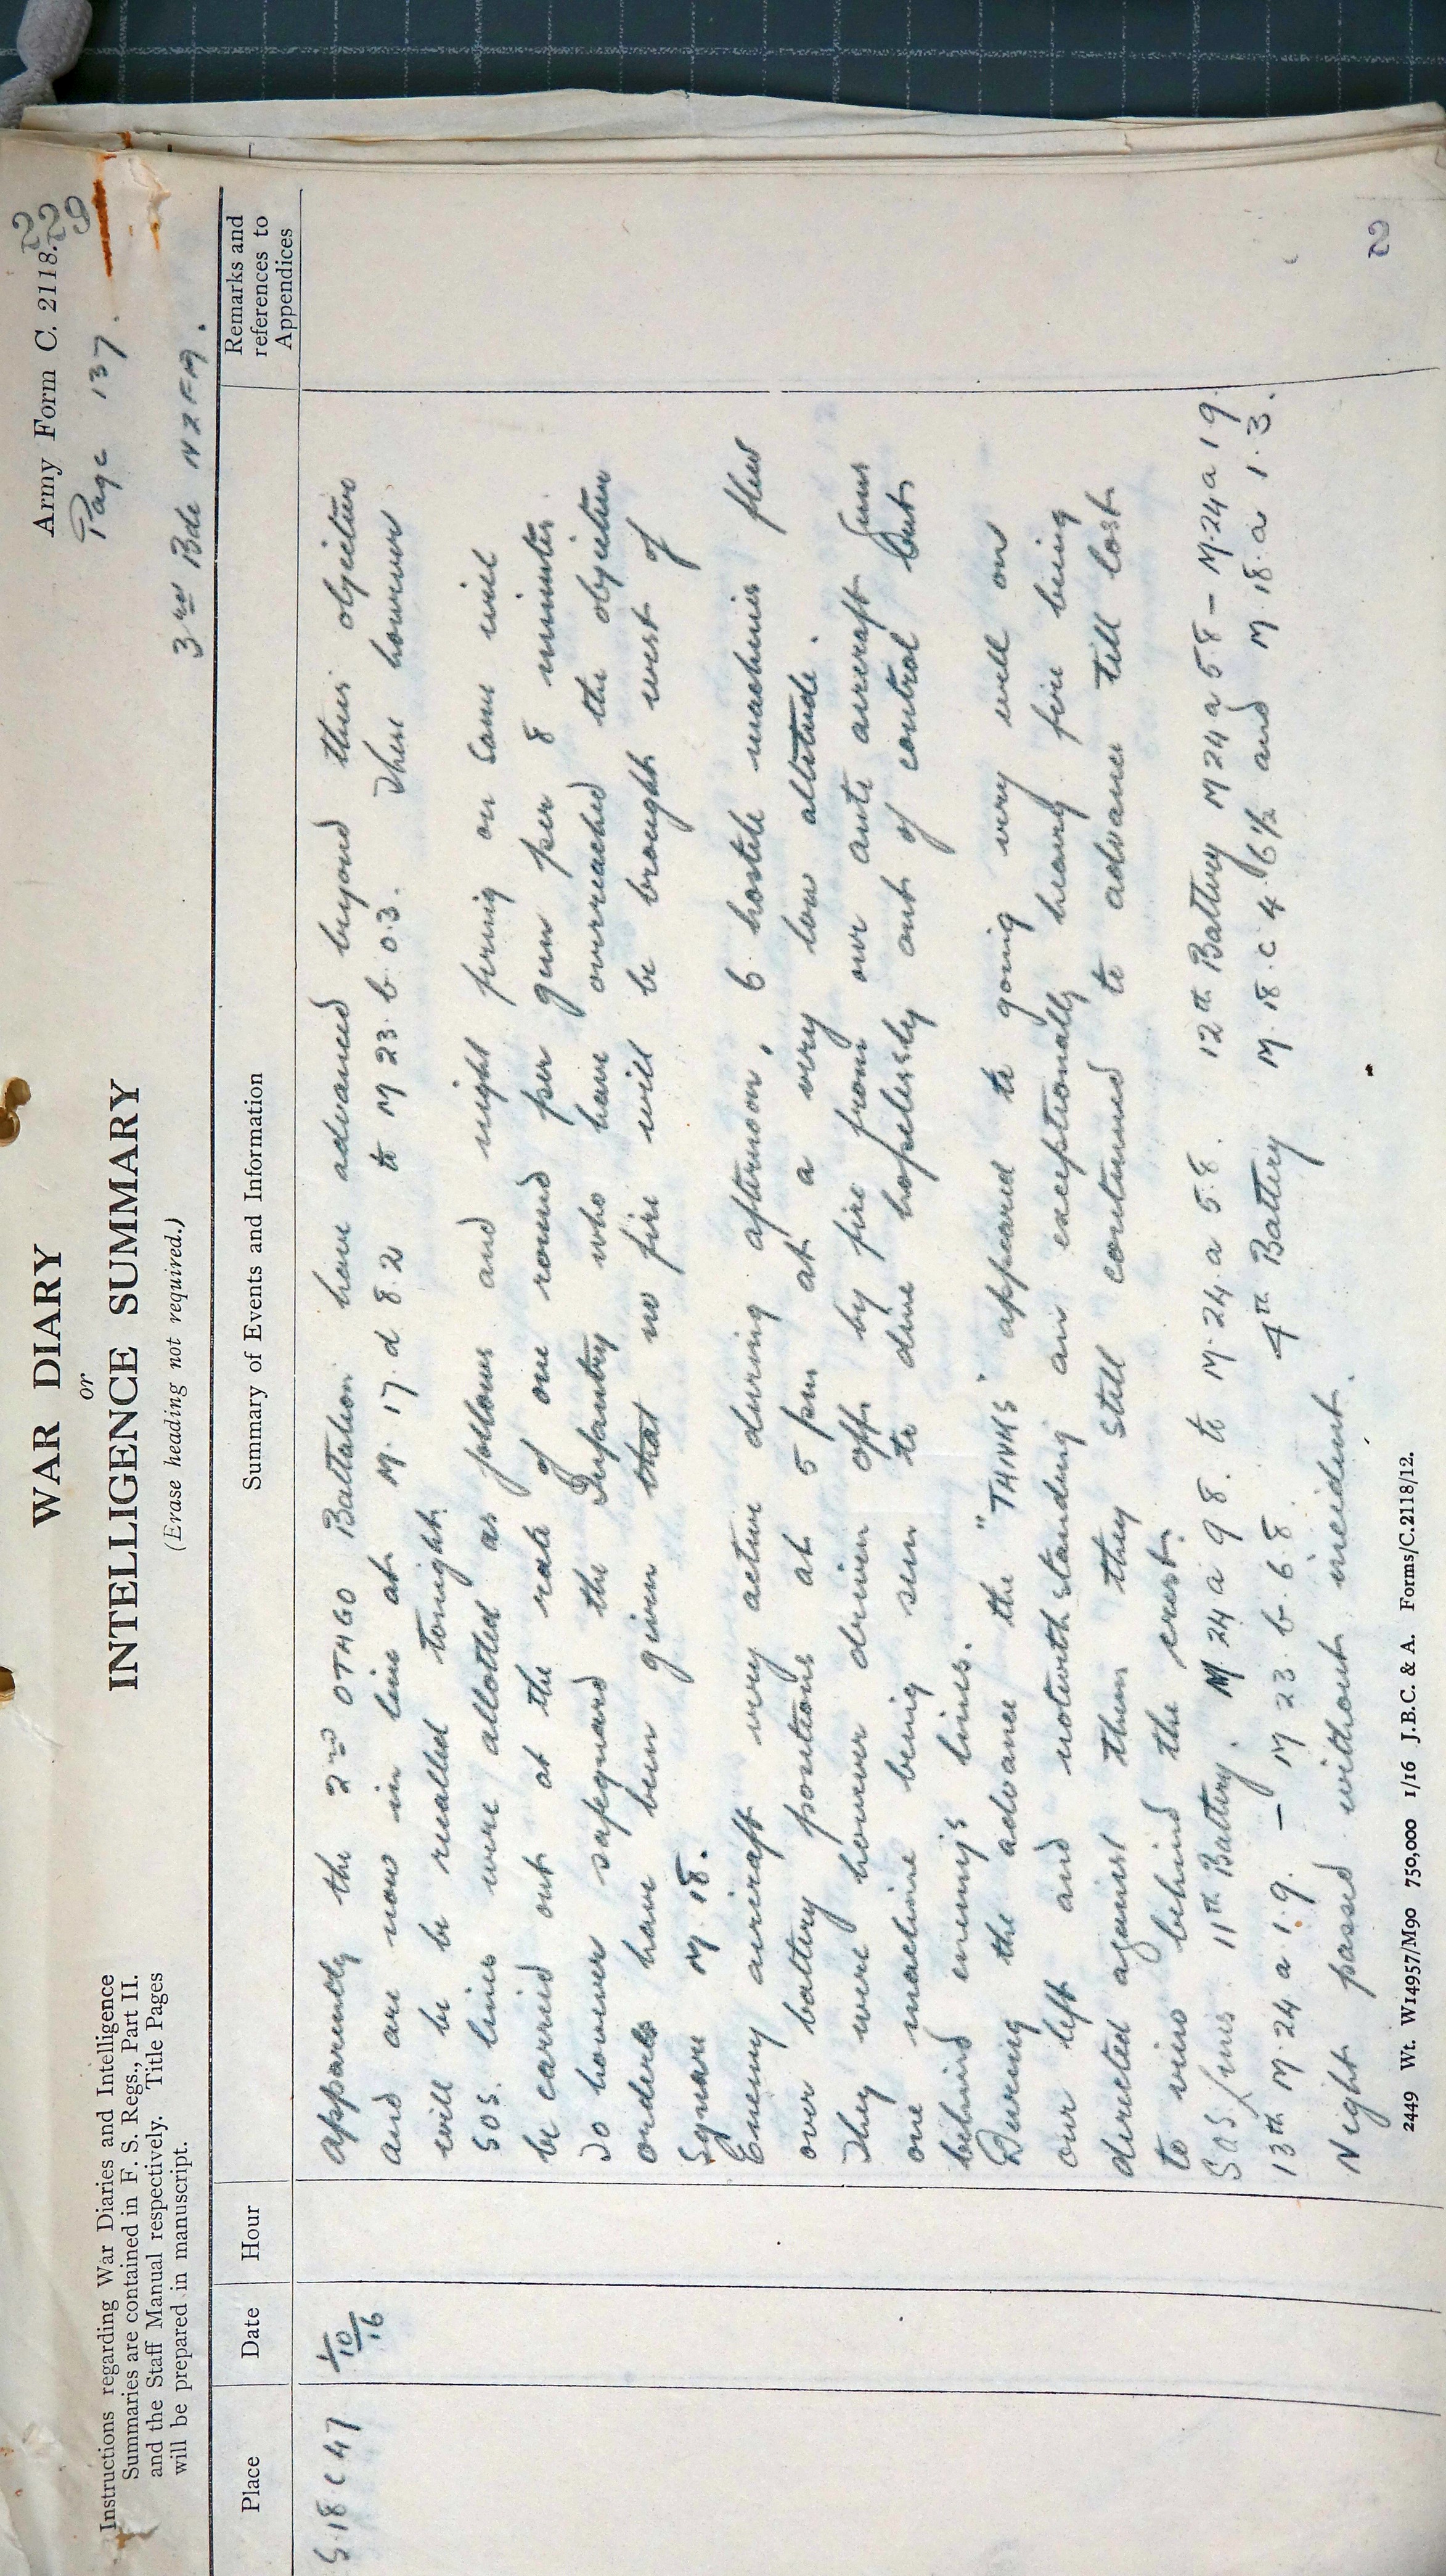 229
Army Form C. 2118.
Page 137.
3rd Bde NZFA.
WAR DIARY
or
INTELLIGENCE SUMMARY
(Erase heading not required.)
Instructions regarding War Diaries and Intelligence
Summaries are contained in F. S. Regs., Part II.
and the Staff Manual respectively. Title Pages
will be prepared in manuscript.
Place Date Hour Summary of Events and Information Remarks and references to Appendices
S.18.c 47 1/10/16 apparently the 2nd OTAGO Battalion have advanced beyond their objective
and are now in line at M.17.d 8.2 to M 23.b.0.3. These however
will be recalled tonight.
SOS. lines were allotted as follows and night firing on same will
be carried out at the rate of one round per gun per 8 minutes.
To however safeguard the Infantry who have overreached the objective
orders have been given that no fire will be brought west of
Square M.18.
Enemy aircraft very active during afternoon, 6 hostile machines flew
over battery positions at 5 pm at a very low altitude.
They were however driven off by fire from our anti aircraft guns
one machine being seen to drive hopelessly out of control but
behind enemy's lines.
During the advance the "TANKS" appeared to going very well on
our left and notwithstanding an exceptionally heavy fire being
directed against them they still continued to advance till lost
to view behind the crest.
SOS lines 11th Battery. M 24 a 9 8. to M.24.a 5.8. 12th Battery M 24 a 5 8 - M.24 a 1 9.
13th M.24 a 1.9. - M 23.b.6.8. 4th Battery M.18.c 4.6½ and M 18.a 1.3.
Night passed without incident.
2449 Wt. W14957/M90 750,000 1/16 J.B.C. & A. Forms/C.2118/12.
2